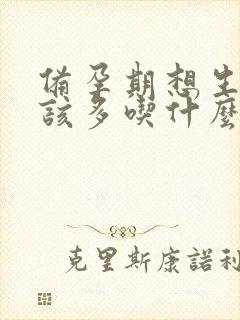 備孕期想生
該多喫什麼
克里斯康諾利